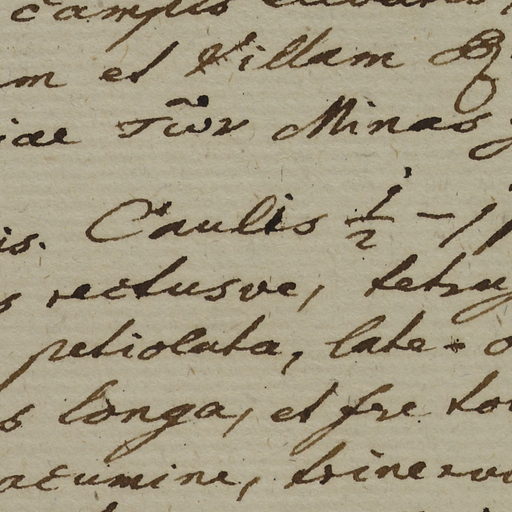 campis
m et Villam
iae Minas
is. Caulis 1/2 -
s rectusve, tetra
petiolata, late-o
s longa, et fere to
acumine, trinerv